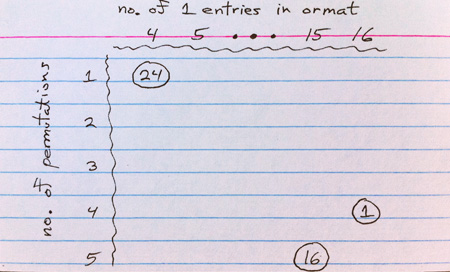 no. of 1 entries in ormat
4 5 • • • 15 16
no. of permutations
1 24
2
3
4 1
5 16